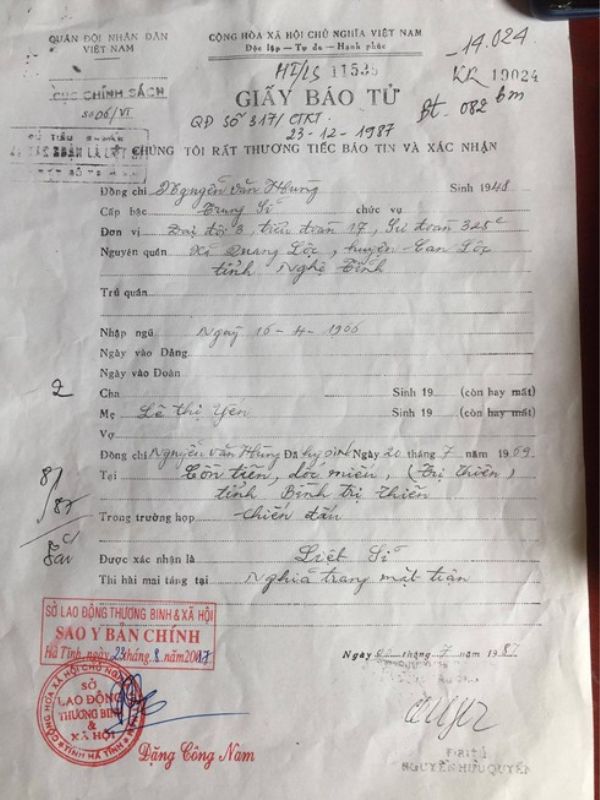 QUÂN ĐỘI NHÂN DÂN
VIỆT NAM
CỘNG HÒA XÃ HỘI CHỦ NGHĨA VIỆT NAM
Độc lập — Tự do — Hạnh phúc
14.024
CỤC CHÍNH SÁCH
Số 06/VI
HT/LS 11535
KR 19024
GIẤY BÁO TỬ
Bt. 082 bm
QĐ SỐ 317/CTKT
23-12-1987
CHÚNG TÔI RẤT THƯƠNG TIẾC BÁO TIN VÀ XÁC NHẬN
Đồng chí Nguyễn Văn Hùng Sinh 1948
Cấp bậc Trung Sĩ chức vụ
Đơn vị Đại đội 3, tiểu đoàn 17, Sư đoàn 325c
Nguyên quán Xã Quang Lộc, huyện Can Lộc
tỉnh Nghệ Tĩnh
Trú quán
Nhập ngũ Ngày 16-4-1966
Ngày vào Đảng
Ngày vào Đoàn
2
Cha Sinh 19 (còn hay mất)
Mẹ Lê Thị Yến Sinh 19 (còn hay mất)
Vợ
Đồng chí Nguyễn Văn Hùng Đã hy sinh Ngày 20 tháng 7 năm 1969
Tại Cồn tiên, dốc miếu, (Trị Thiên)
tỉnh Bình Trị Thiên
87/87
Trong trường hợp chiến đấu
Được xác nhận là Liệt Sĩ
Thi hài mai táng tại Nghĩa trang mặt trận
SỞ LAO ĐỘNG THƯƠNG BINH & XÃ HỘI
SAO Y BẢN CHÍNH
Hà Tĩnh, ngày 23 tháng 8 năm 2017
Ngày tháng 7 năm 1987
CỘNG HÒA XÃ HỘI CHỦ NGHĨA
SỞ
LAO ĐỘNG
THƯƠNG BINH
&
XÃ HỘI
TỈNH HÀ TĨNH
Đặng Công Nam
NGUYỄN HỮU QUYỀN